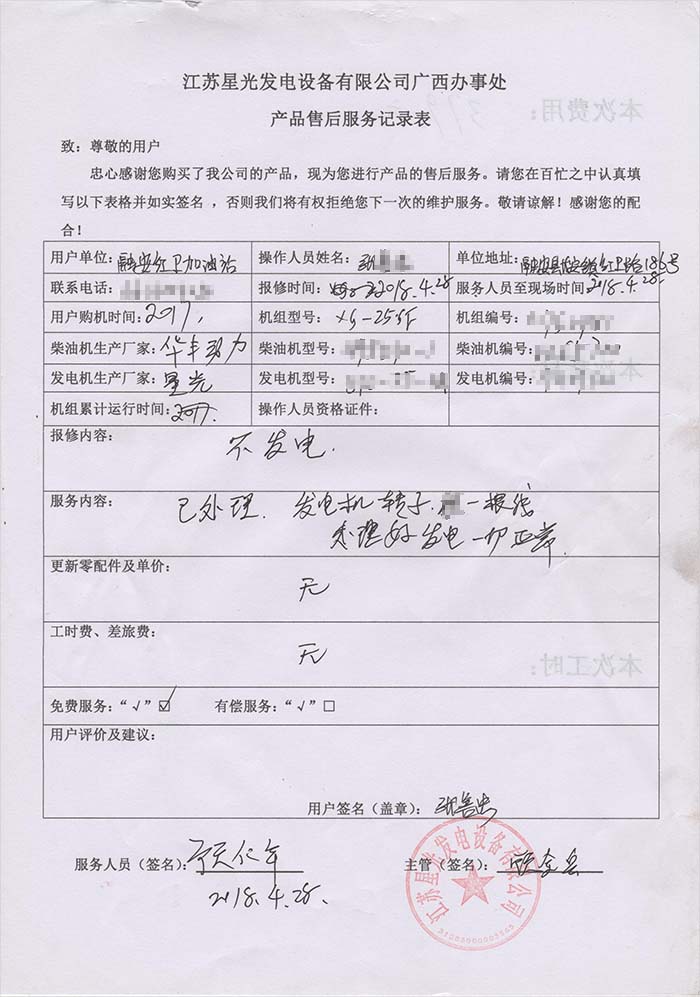 江苏星光发电设备有限公司广西办事处
产品售后服务记录表
致：尊敬的用户
忠心感谢您购买了我公司的产品，现为您进行产品的售后服务。请您在百忙之中认真填
写以下表格并如实签名，否则我们将有权拒绝您下一次的维护服务。敬请谅解！感谢您的配
合！
用户单位：融安红卫加油站 操作人员姓名： 单位地址：融安县长安镇红卫路186号
联系电话： 报修时间：2018.4.28 服务人员至现场时间：2018.4.28.
用户购机时间：2017. 机组型号：XG-25GF 机组编号：
柴油机生产厂家：华丰动力 柴油机型号： 柴油机编号：
发电机生产厂家：星光 发电机型号： 发电机编号：
机组累计运行时间：2017. 操作人员资格证件：
报修内容：
不发电.
服务内容：
已处理. 发电机转子 一根线
处理好发电一切正常.
更新零配件及单价：
无
工时费、差旅费：
无
免费服务：“√”☑ 有偿服务：“√”□
用户评价及建议：
用户签名（盖章）：
服务人员（签名）： 主管（签名）：
2018.4.28.
江苏星光发电设备有限公司
本次费用：
本次工时：